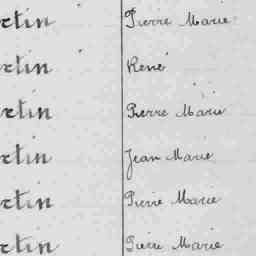 rtin Pierre Marie
rtin René
rtin Pierre Marie
rtin Jean Marie
rtin Pierre Marie
rtin Pierre Marie